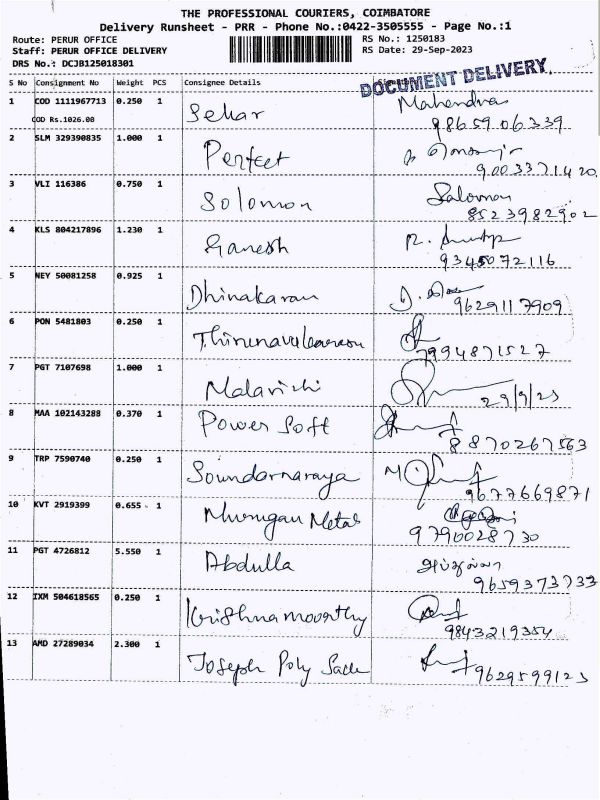 THE PROFESSIONAL COURIERS, COIMBATORE
Delivery Runsheet - PRR - Phone No.:0422-3505555 - Page No.:1
Route: PERUR OFFICE RS No.: 1250183
Staff: PERUR OFFICE DELIVERY RS Date: 29-Sep-2023
DRS No.: DCJB125018301
DOCUMENT DELIVERY.
S No Consignment No Weight PCS Consignee Details
1 COD 1111967713 0.250 1 Sekar Mahendran
COD Rs.1026.00 9865906339
2 SLM 329390835 1.000 1 Perfect
9003371420
3 VLI 116386 0.750 1 Solomon Salomon
8523982902
4 KLS 804217896 1.230 1 Ganesh
9345072116
5 NEY 50081258 0.925 1 Dhinakaran
9629117909
6 PON 5481803 0.250 1 Thirunavukarasu
7994871527
7 PGT 7107698 1.000 1 Malarvizhi
29/9/23
8 MAA 102143288 0.370 1 Power Soft
8870267563
9 TRP 7590740 0.250 1 Soundarnaraya
9677669871
10 KVT 2919399 0.655 1 Murugan Metal
9790028730
11 PGT 4726812 5.550 1 Abdulla அப்துல்லா
9659373733
12 IXM 504618565 0.250 1 Krishnamoorthy
9843219354
13 AMD 27289034 2.300 1 Joseph Poly Sack
9629599123